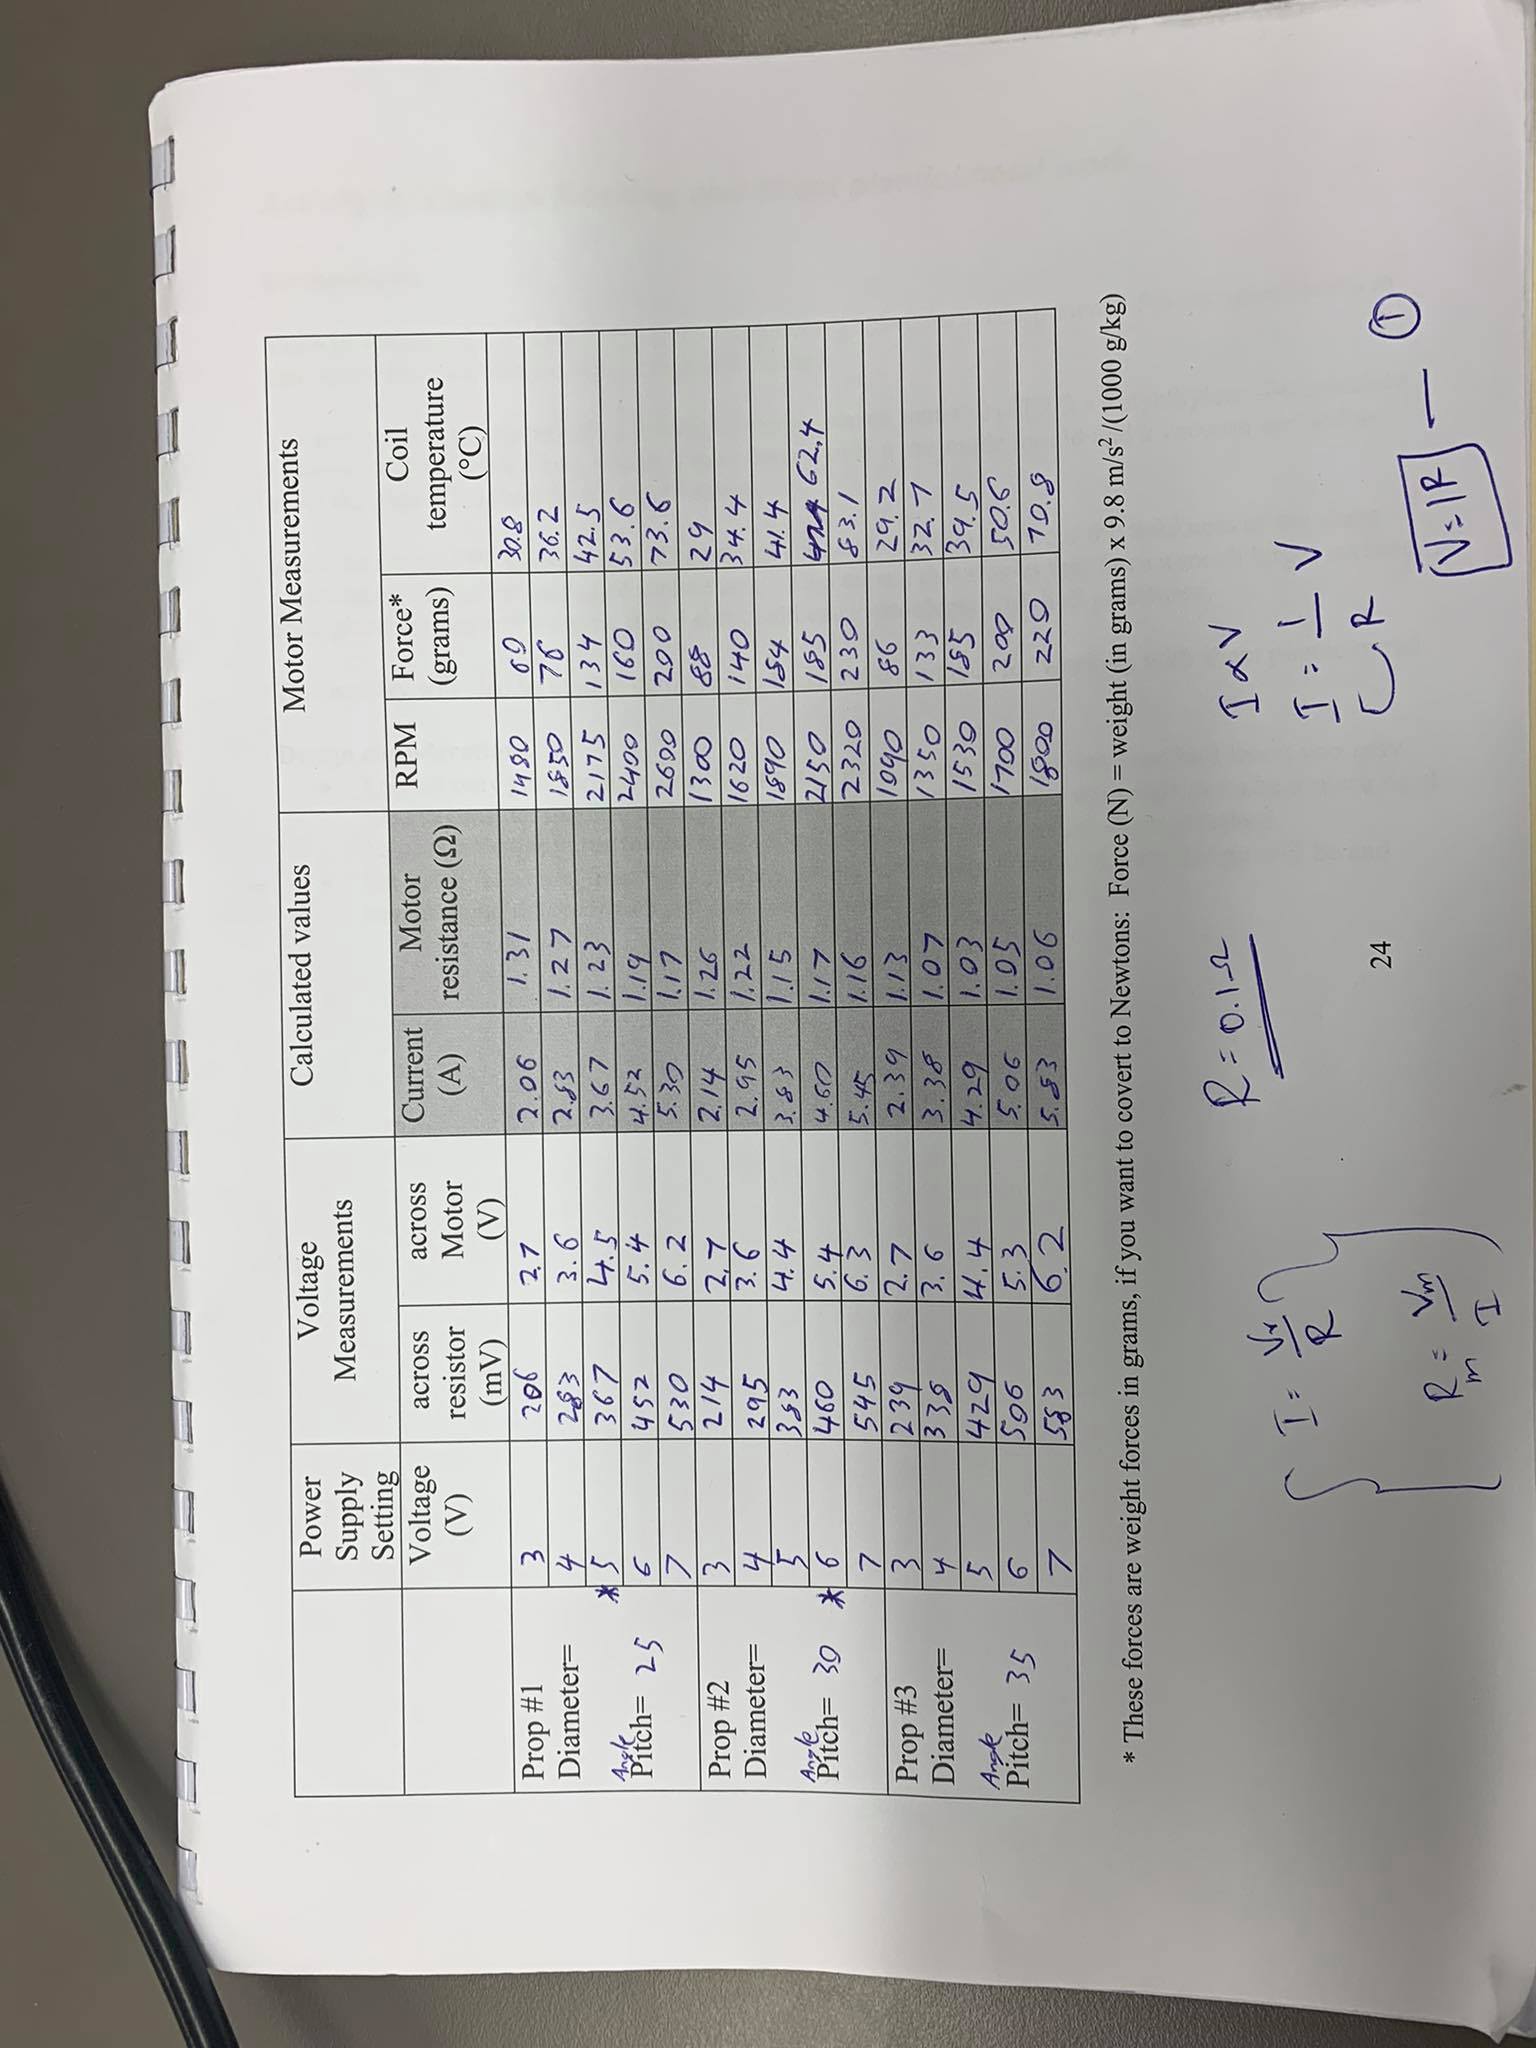 Power Supply Setting | Voltage Measurements | Calculated values | Motor Measurements
Voltage (V) | across resistor (mV) | across Motor (V) | Current (A) | Motor resistance (Ω) | RPM | Force* (grams) | Coil temperature (°C)
Prop #1 Diameter= Angle Pitch= 25
3 | 206 | 2.7 | 2.06 | 1.31 | 1480 | 60 | 30.8
4 | 283 | 3.6 | 2.83 | 1.27 | 1850 | 76 | 36.2
* 5 | 367 | 4.5 | 3.67 | 1.23 | 2175 | 134 | 42.5
6 | 452 | 5.4 | 4.52 | 1.19 | 2400 | 160 | 53.6
7 | 530 | 6.2 | 5.30 | 1.17 | 2600 | 200 | 73.6
Prop #2 Diameter= Angle Pitch= 30
3 | 214 | 2.7 | 2.14 | 1.26 | 1300 | 88 | 29
4 | 295 | 3.6 | 2.95 | 1.22 | 1620 | 140 | 34.4
5 | 383 | 4.4 | 3.83 | 1.15 | 1890 | 184 | 41.4
* 6 | 460 | 5.4 | 4.60 | 1.17 | 2150 | 185 | 62.4
7 | 545 | 6.3 | 5.45 | 1.16 | 2320 | 230 | 83.1
Prop #3 Diameter= Angle Pitch= 35
3 | 239 | 2.7 | 2.39 | 1.13 | 1090 | 86 | 29.2
4 | 338 | 3.6 | 3.38 | 1.07 | 1350 | 133 | 32.7
5 | 429 | 4.4 | 4.29 | 1.03 | 1530 | 185 | 39.5
6 | 506 | 5.3 | 5.06 | 1.05 | 1700 | 200 | 50.6
7 | 583 | 6.2 | 5.83 | 1.06 | 1800 | 220 | 70.8
* These forces are weight forces in grams, if you want to covert to Newtons: Force (N) = weight (in grams) x 9.8 m/s² /(1000 g/kg)
R = 0.1Ω
I = Vr/R
Rm = Vm/I
I ∝ V
I = 1/R V
V = IR — ①
24